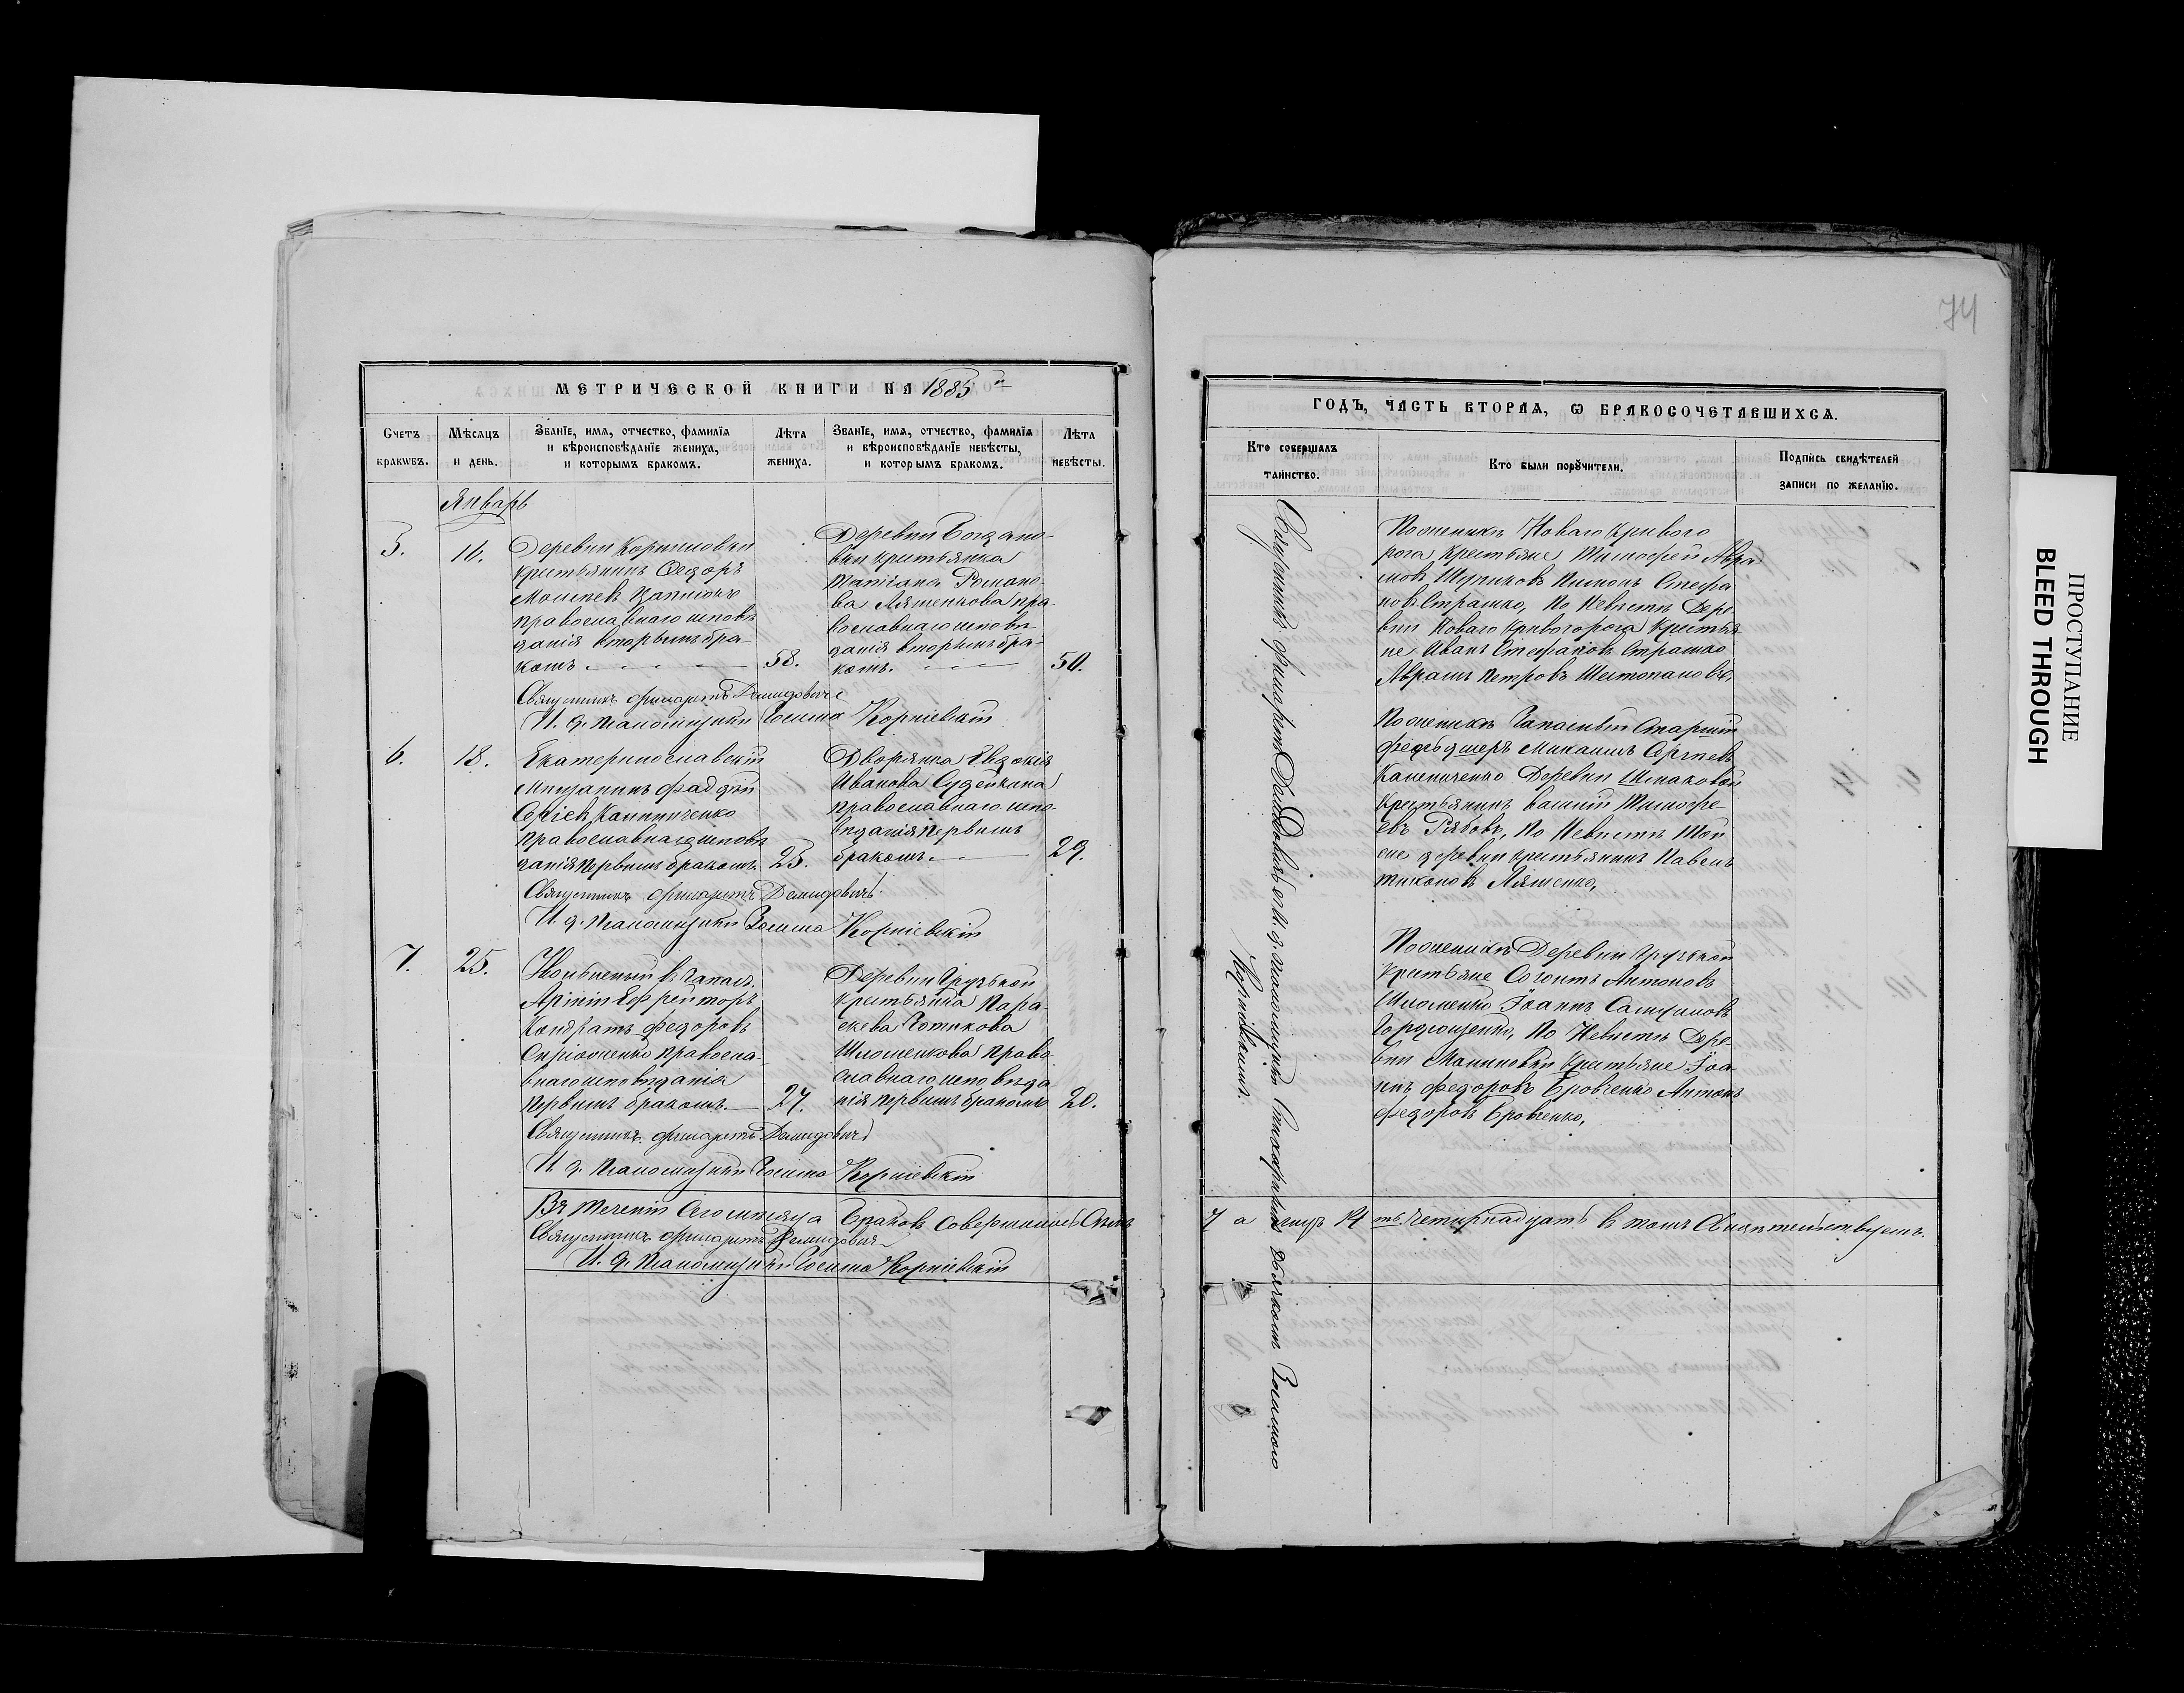 74
МЕТРИЧЕСКОЙ КНИГИ НА 1885
Счетъ браковъ.
Мѣсяцъ и день.
Званїе, имя, отчество, фамилїя и вѣроисповѣданїе жениха, и которымъ бракомъ.
Лѣта жениха.
Званїе, имя, отчество, фамилїя и вѣроисповѣданїе невѣсты, и которымъ бракомъ.
Лѣта невѣсты.
Январь
5.
16.
Деревни
крестьянинъ Ѳедоръ
Моисеевъ
православнаго исповѣ
данія вторымъ бра
комъ.
58.
Деревни Богдано-
вки крестьянка
Татіана Романо
ва Ляшенкова пра-
вославнаго исповѣ
данія вторымъ бра-
комъ.
50.
Священникъ Филаретъ Демидовичъ
И. д. псаломщика Зосима Корніевскій
6.
18.
Екатеринославскій
мѣщанинъ Фаддей
Сергіевъ
православнаго исповѣ
данія первымъ бракомъ.
25.
Дворянка Евдокія
Иванова Судейкина
православнаго испо-
вѣданія первымъ
бракомъ.
29.
Священникъ Филаретъ Демидовичъ
И. д. псаломщика Зосима Корніевскій
7.
25.
Уволенный въ запасъ
Арміи Ефрейторъ
Кондратъ Федоровъ
правосла-
внаго исповѣданія
первымъ бракомъ.
27.
Деревни Грузской
крестьянка Пара-
скева
православнаго исповѣда
нія первымъ бракомъ
20.
Священникъ Филаретъ Демидовичъ
И. д. псаломщика Зосима Корніевскій
Въ теченіи сего мѣсяца браковъ совершилось Семь
Священникъ Филаретъ Демидовичъ
И. д. псаломщика Зосима Корніевскій
ГОДЪ, ЧАСТЬ ВТОРАЯ, Ѡ БРАКОСОЧЕТАВШИХСЯ.
Кто совершалъ таинство.
Кто были порꙋчители.
Подпись свидѣтелей записи по желанїю.
Священникъ Филаретъ Демидовичъ съ и. д. псаломщика Зосимою
Корніевскимъ.
По женихѣ Новаго Кривого
рога крестьяне Тимофей Авра
мовъ Пименъ Стефа
новъ Страшко, По невѣстѣ Дере-
вни Новаго Кривого рога крестья
не Иванъ Стефановъ Страшко
Аврамъ Петровъ
По женихѣ Запасный Старшій
фельдшеръ Михаилъ Сергѣевъ
Деревни Шпаковой
крестьянинъ Тимофе-
евъ Рябовъ, По невѣстѣ той
же деревни крестьянинъ Павелъ
Тихоновъ Ляшенко,
По женихѣ Деревни Грузской
крестьяне Антоновъ
Іоаннъ
По невѣстѣ Дере-
вни крестьяне Іоа
ннъ Федоровъ Бровченко Антонъ
Федоровъ Бровченко,
7 а лицъ 14 ть четырнадцать въ томъ Свидѣтельствуемъ.
ПРОСТУПАНИЕ
BLEED THROUGH